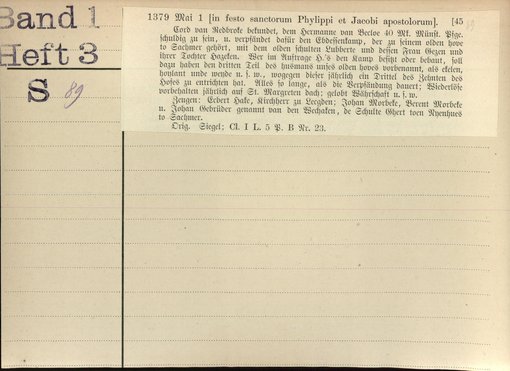 Band 1
Heft 3
S 89
1379 Mai 1 [in festo sanctorum Phylippi et Jacobi apostolorum]. [45
Cord van Redbroke bekundet, dem Hermanne van Verloe 40 Mk. Münst. Pfge.
schuldig zu sein, u. verpfändet dafür den Ebdessenkamp, der zu seinem olden hove
to Sachmer gehört, mit dem olden schulten Lubberte und dessen Frau Gezen und
ihrer Tochter Hazeken. Wer im Auftrage H.'s den Kamp besitzt oder bebaut, soll
dazu haben den dritten Teil des husmans unses olden hoves vorbenannt, als ekelen,
hoylant unde weyde u. s. w., wogegen dieser jährlich ein Drittel des Zehnten des
Hofes zu entrichten hat. Alles so lange, als die Verpfändung dauert; Wiederlöse
vorbehalten jährlich auf St. Margreten dach; gelobt Währschaft u. s. w.
Zeugen: Evert Hake, Kirchherr zu Legden; Johan Morbeke, Berent Morbeke
u. Johan Gebrüder genannt van den Wechaken, de Schulte Ghert toen Nyenhues
to Sachmer.
Orig. Siegel; Cl. I L. 5 P. B Nr. 23.